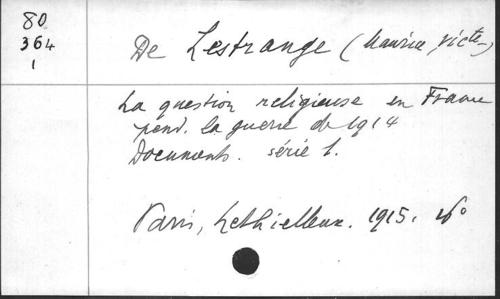 80
364
1
De Lestrange (Maurice, victe)
La question religieuse en France
pend. la guerre de 1914
Documents. série 1.
Paris, Lethielleux. 1915. 16°